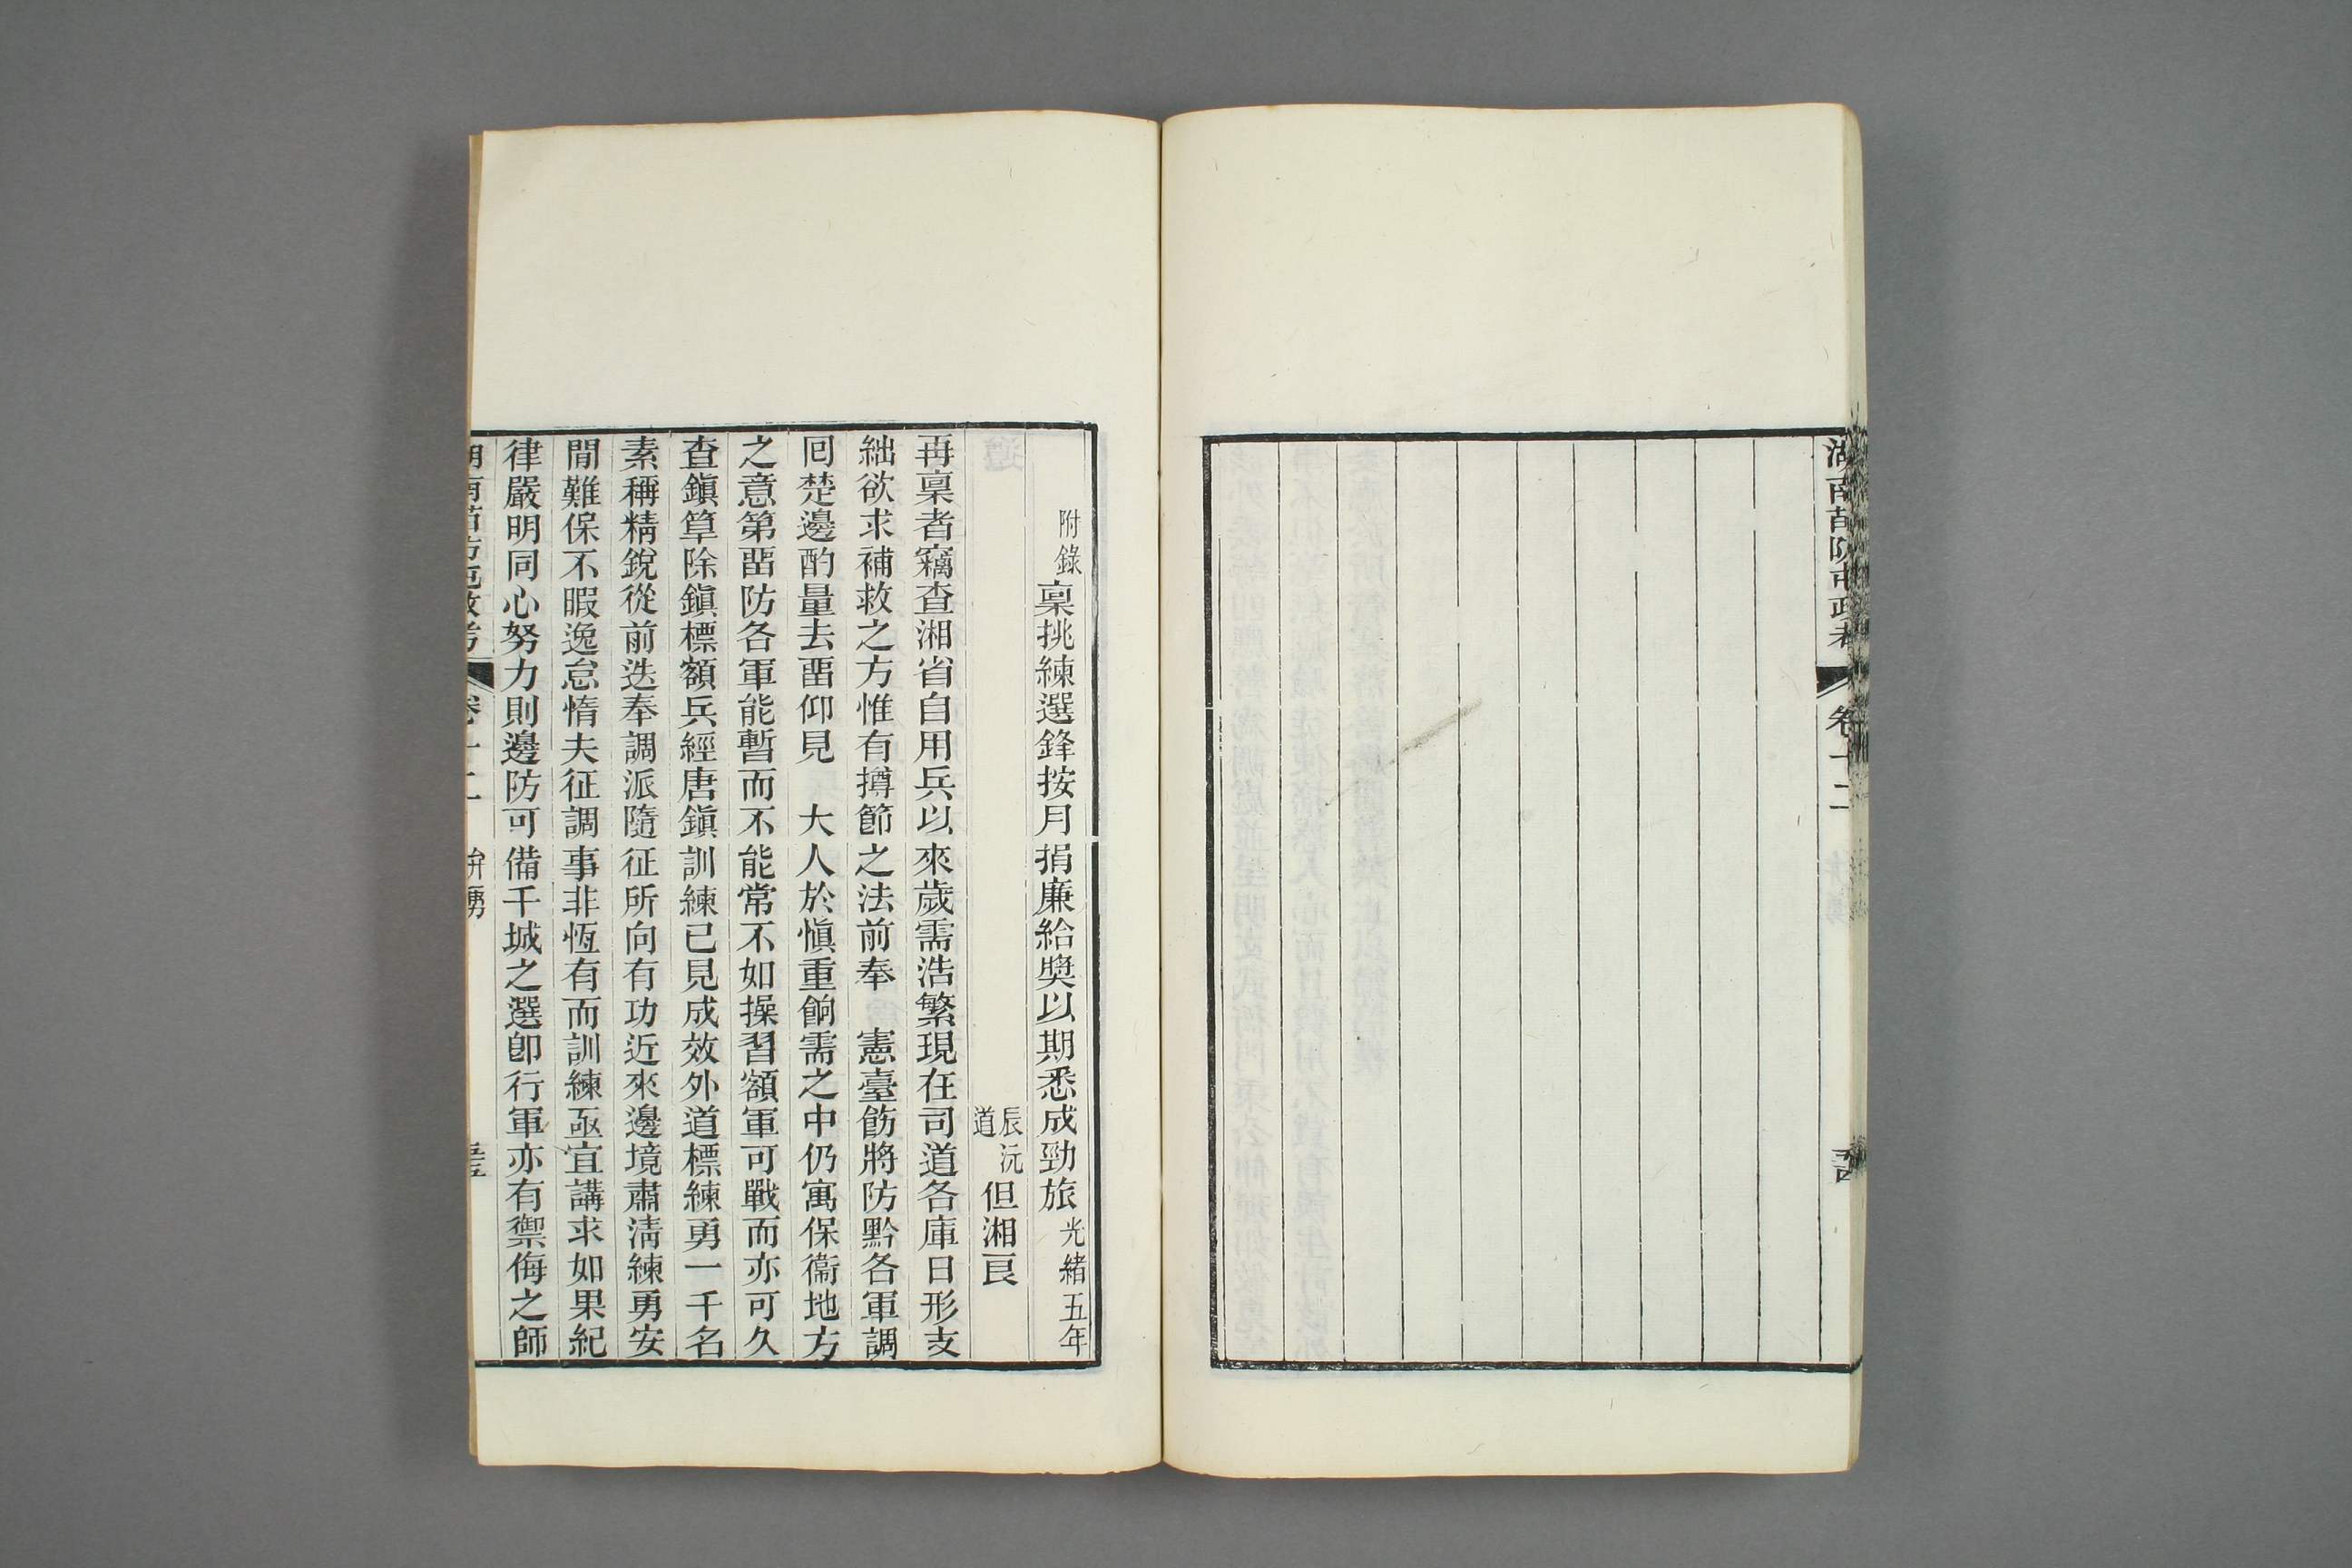 湖南苗防屯政考 卷十二 五十四
附錄稟挑練選鋒按月捐廉給獎以期悉成勁旅光緒五年
辰沅道但湘良
再稟者竊查湘省自用兵以來歲需浩繁現在司道各庫日形支
絀欲求補救之方惟有撙節之法前奉 憲臺飭將防黔各軍調
囘楚邊酌量去畱仰見 大人於愼重餉需之中仍寓保衞地方
之意第畱防各軍能暫而不能常不如操習額軍可戰而亦可久
查鎭筸除鎭標額兵經唐鎭訓練已見成效外道標練勇一千名
素稱精銳從前迭奉調派隨征所向有功近來邊境肅淸練勇安
閒難保不暇逸怠惰夫征調事非恆有而訓練亟宜講求如果紀
律嚴明同心努力則邊防可備干城之選卽行軍亦有禦侮之師
湖南苗防屯政考 卷十二 弁勇 五十五